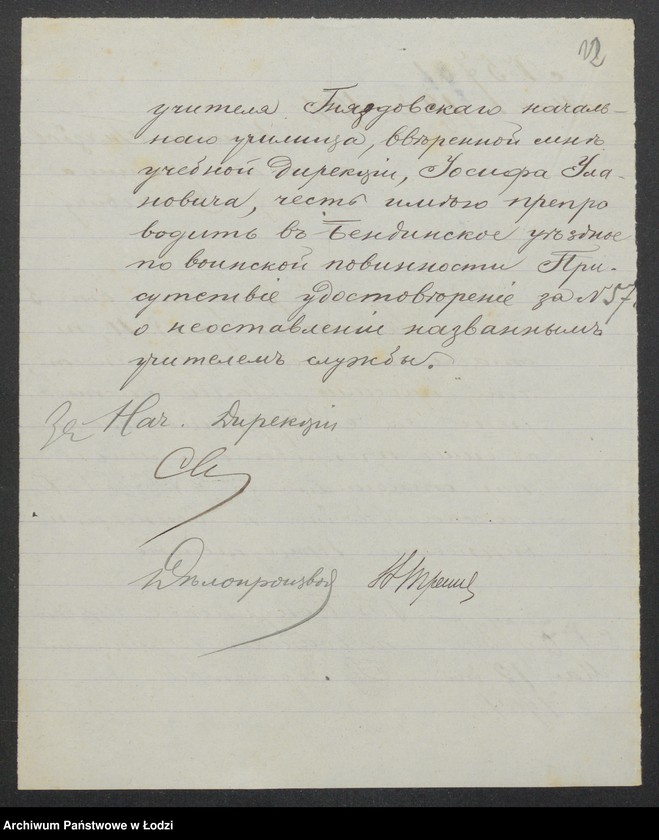 12
учителя Гняздовскаго началь-
наго училища, ввѣренной мнѣ
учебной Дирекціи, Іосифа Ула-
новича, честь имѣю препро
водить въ Бендинское уѣздное
по воинской повинности При-
сутствіе удостовѣреніе за № 57
о неоставленіи названнымъ
учителемъ службы.
За Нач. Дирекціи
Дѣлопроизвод
Archiwum Państwowe w Łodzi